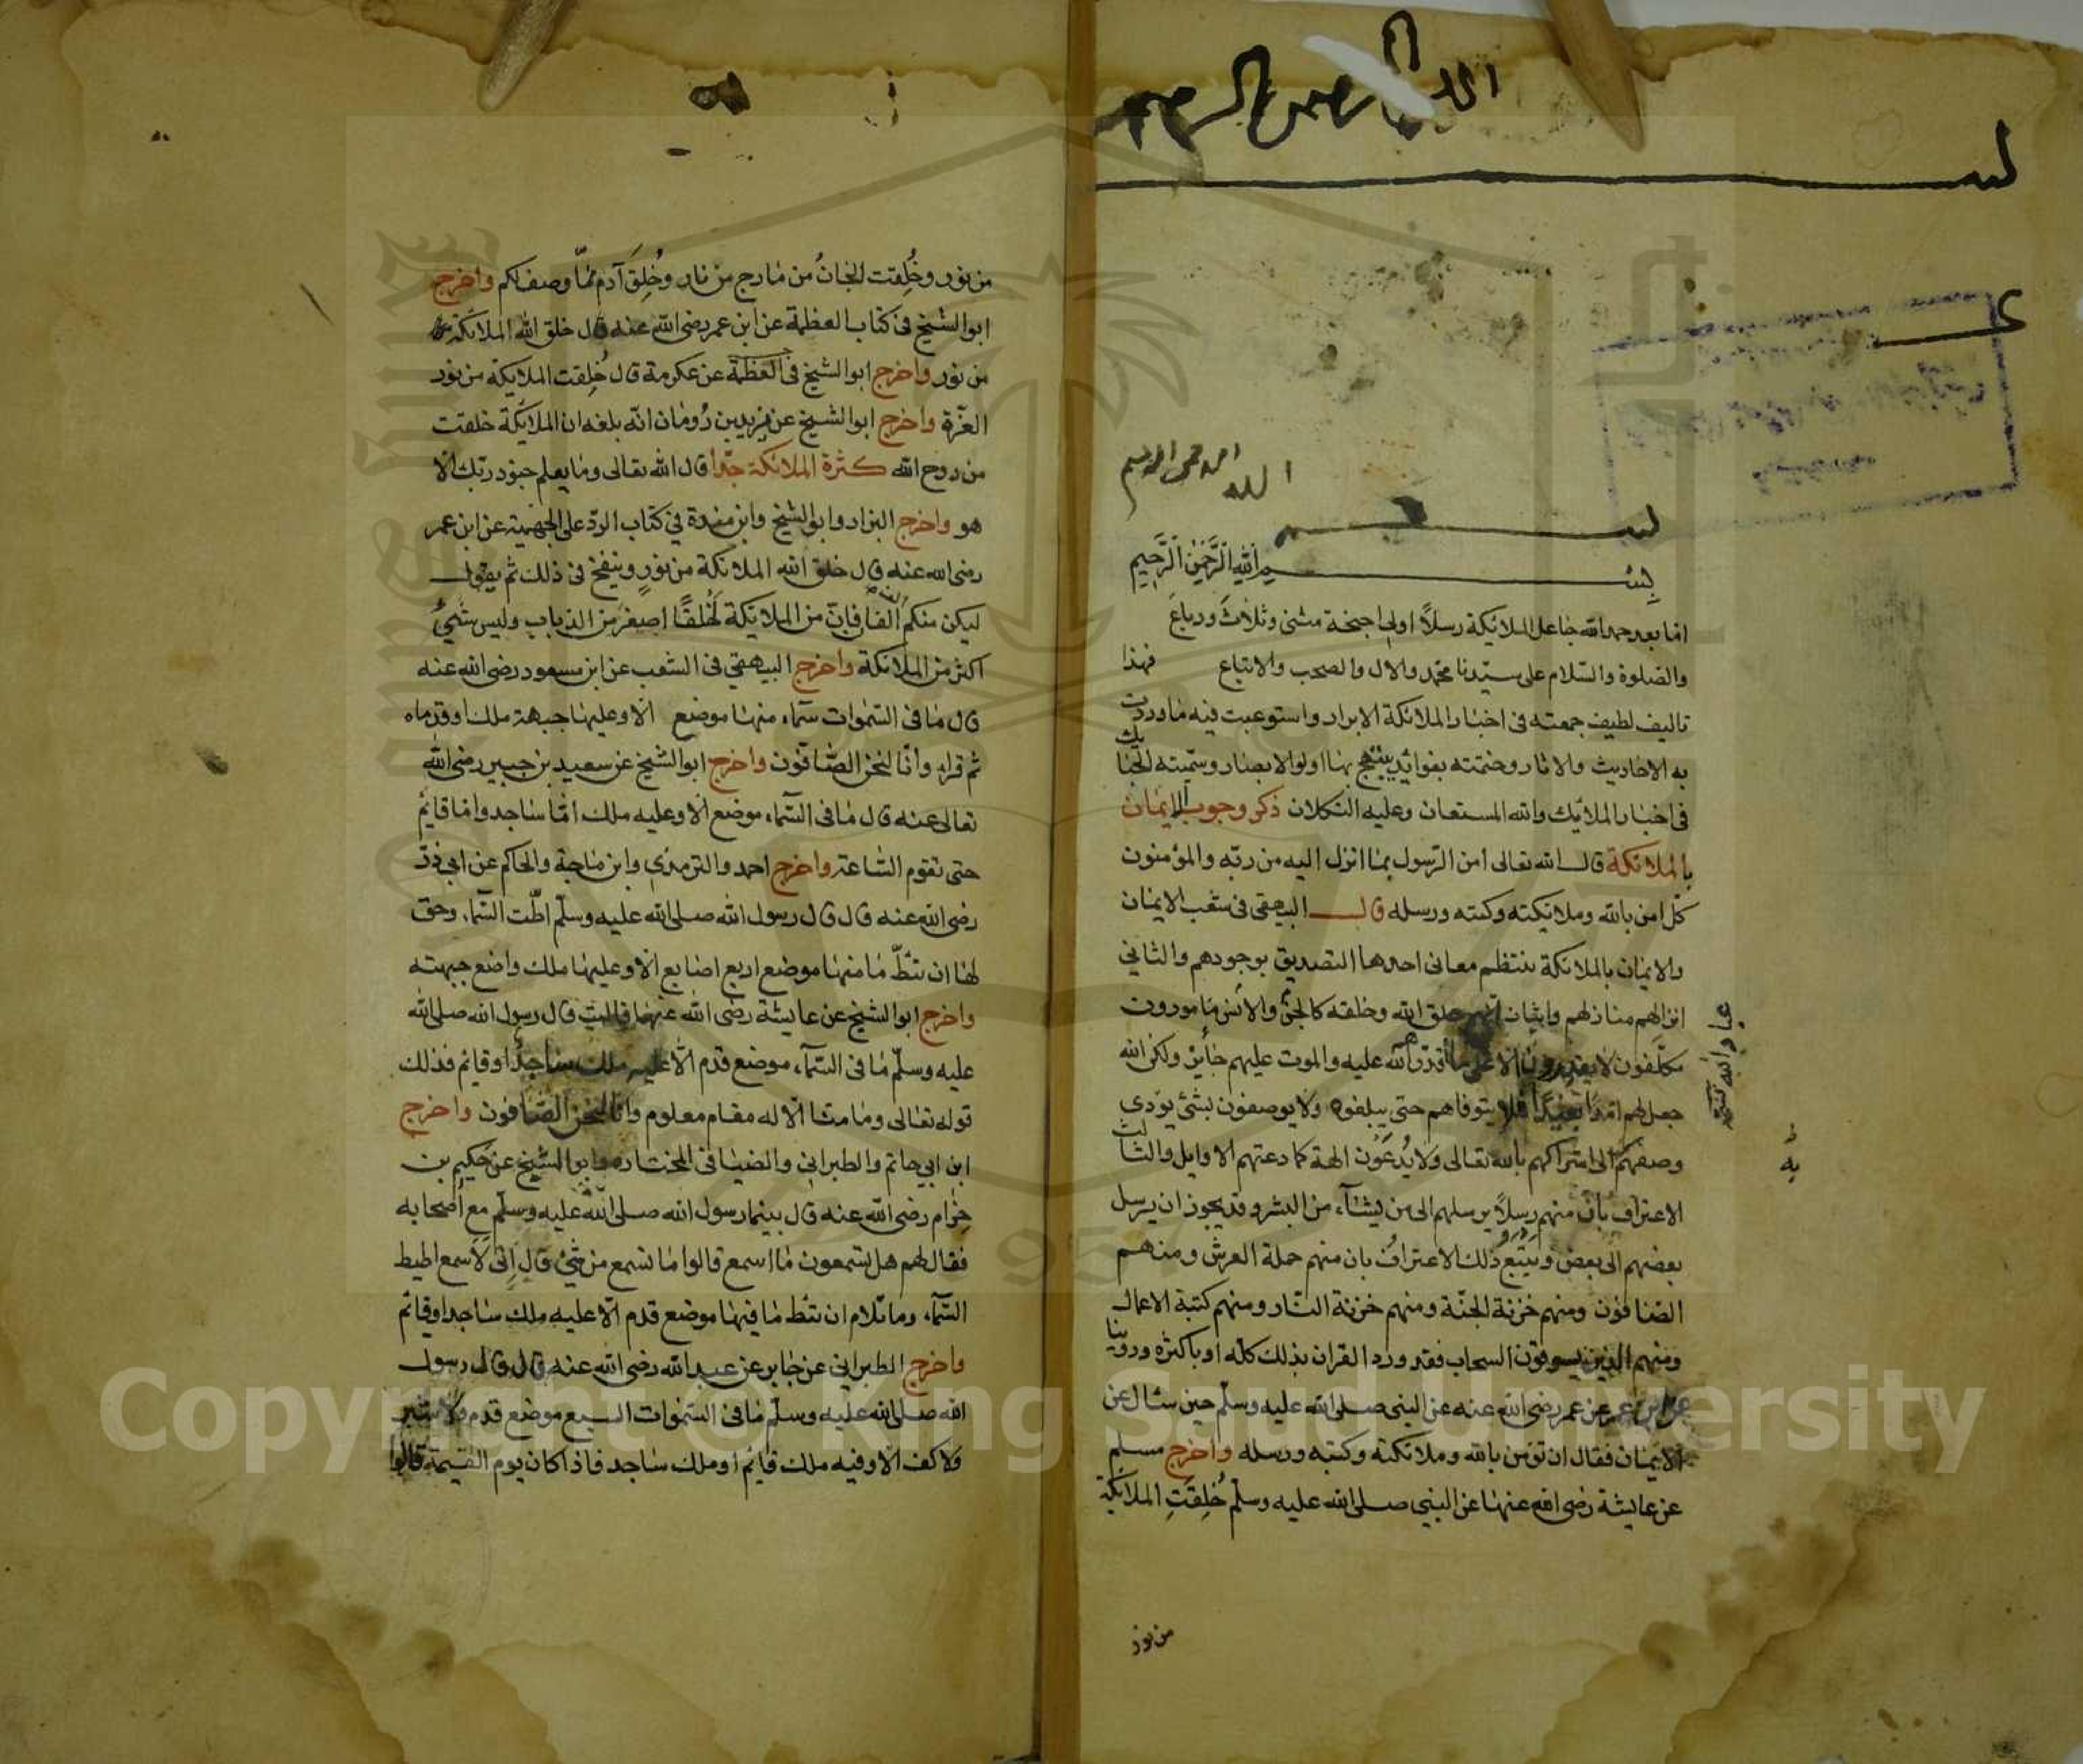 بسم الله الرحمن الرحيم
بسم الله الرحمن الرحيم
بِسْم اللّٰهِ الرَّحْمٰنِ الرَّحِيمِ
اما بعد حمد الله جاعل الملائكة رسلاً اولى اجنحة مثنى وثلاث ورباع
والصلوة والسّلام على سيّدنا محمّد والال والصحب والاتباع فهذا
تاليف لطيف جمعته فى اخبار الملائكة الابرار واستوعبت فيه ما وردت
به الاحاديث والاثار وختمته بفوائد يبتهج بها اولوا لابصار وسمّيته الحبائك
فى اخبار الملائك والله المستعان وعليه التكلان ذكر وجوب الايمان
بالملائكة قال الله تعالى امن الرّسول بما انزل اليه من ربّه والمؤمنون
كلّ امن بالله وملائكته وكتبه ورسله قال البيهقى فى شعب الايمان
والايمان بالملائكة ينتظم معانى احدها التصديق بوجودهم والثانى
انزالهم منازلهم واثبات انهم خلق الله وخلقه كالجنّ والانس مامورون
مكلّفون لا يقدرون الا على ما قدّرهم الله عليه والموت عليهم جائز ولكن الله
جعل لهم امدا بعيدًا فلا يتوفاهم حتى يبلغوه ولا يوصفون بشئ يؤدى
وصفهم الى اشراكهم بالله تعالى ولا يُدعَوْن الهة كما دعتهم الاوايل والثالث
الاعتراف بأن منهم رسلاً يرسلهم الى من يشآء من البشر وقد يجوز ان يرسل
بعضهم الى بعض ويتبع ذلك الاعتراف بان منهم حملة العرش ومنهم
الصّافون ومنهم خزنة الجنّة ومنهم خزنة النّار ومنهم كتبة الاعمال
ومنهم الذين يسوقون السحاب فقد ورد القران بذلك كلّه او باكثره وروينا
عن ابن عمر عن عمر رضى الله عنه عن النبى صلى الله عليه وسلّم حين سئال عن
الايمان فقال ان تؤمن بالله وملائكته وكتبه ورسله واخرج مسلم
عن عايشة رضى الله عنها عن النبى صلى الله عليه وسلّم خُلِقَتِ الملائكة
من نور
من نور وخُلِقت الجانُ من مارج من نار وخُلِقَ آدم ممّا وصف لكم واخرج
ابو الشيخ فى كتاب العظمة عن ابن عمر رضى الله عنه قال خلق الله الملائكة
من نور واخرج ابو الشيخ فى العظمة عن عكرمة قال خُلِقت الملائكة من نور
العزّة واخرج ابو الشيخ عن يزيد بن رُومان انّه بلغه ان الملائكة خلقت
من روح الله كثرة الملائكة جدّا قال الله تعالى وما يعلم جنود ربّك الّا
هو واخرج البزار وابو الشيخ وابن مندة فى كتاب الردّ على الجهمية عن ابن عمر
رضى الله عنه قال خلق الله الملائكة من نورٍ وينفخ فى ذلك ثم يقول
ليكن منكم الف الفان فانّ من الملائكة لَخلقًا اصغر من الذباب وليس شئُ
اكثر من الملائكة واخرج البيهقى فى الشعب عن ابن مسعود رضى الله عنه
قال ما فى السّموات سمآء منها موضع الّا وعليها جبهة ملك او قدماه
ثم قراء وانّا لنحن الصّافّون واخرج ابو الشيخ عن سعيد بن جبير رضى الله
تعالى عنه قال ما فى السّمآء موضع الّا وعليه ملك امّا ساجد واما قائم
حتى تقوم السّاعة واخرج احمد والترمذى وابن ماجة والحاكم عن ابى ذرّ
رضى الله عنه قال قال رسول الله صلى الله عليه وسلّم اطّت السّمآء وحق
لها ان تئطّ ما منها موضع اربع اصابع الّا وعليها ملك واضع جبهته
واخرج ابو الشيخ عن عايشة رضى الله عنها قالت قال رسول الله صلى الله
عليه وسلّم ما فى السّمآء موضع قدم الّا عليه ملك ساجدًا او قائم فذلك
قوله تعالى وما منّا الّا له مقام معلوم وانّا لنحن الصّافون واخرج
ابن ابى حاتم والطبرانى والضيا فى المختاره وابو الشيخ عن حكيم بن
حِزام رضى الله عنه قال بينما رسول الله صلى الله عليه وسلّم مع اصحابه
فقال لهم هل تسمعون ما اسمع قالوا ما نسمع من شئ قال إنّى لاَسمع اطيط
السّمآء وما تلام ان تئط ما فيها موضع قدم الّا عليه ملك ساجد او قائم
واخرج الطبرانى عن جابر عن عبد الله رضى الله عنه قال قال رسول
الله صلى الله عليه وسلّم ما فى السّموات السبع موضع قدم ولا شبر
ولا كف الّا وفيه ملك قائم او ملك ساجد فاذا كان يوم القيمة قالوا
Copyright © King Saud University